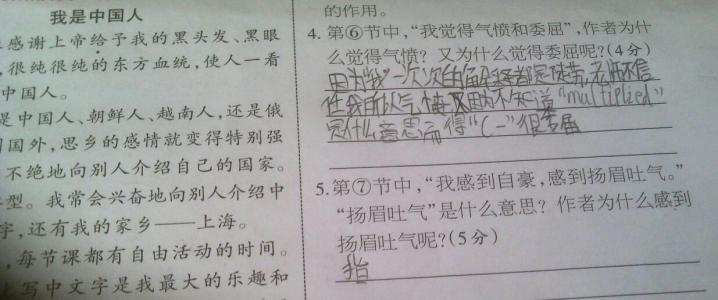 我是中国人
感谢上帝给予我的黑头发、黑眼
,很纯很纯的东方血统,使人一看
中国人。
是中国人、朝鲜人、越南人,还是俄
国外,思乡的感情就变得特别强
不绝地向别人介绍自己的国家。
型。我常会兴奋地向别人介绍中
字,还有我的家乡——上海。
,每节课都有自由活动的时间。
写中文字是我最大的乐趣和
的作用。
4. 第⑥节中,“我觉得气愤和委屈”,作者为什
么觉得气愤?又为什么觉得委屈呢?(4分)
因为“我”一次次的 老师不信
任我所以气愤又因为不知道“multiplzed”
是什么意思而得“C-”很委屈
5. 第⑦节中,“我感到自豪,感到扬眉吐气。”
“扬眉吐气”是什么意思?作者为什么感到
扬眉吐气呢?(5分)
指